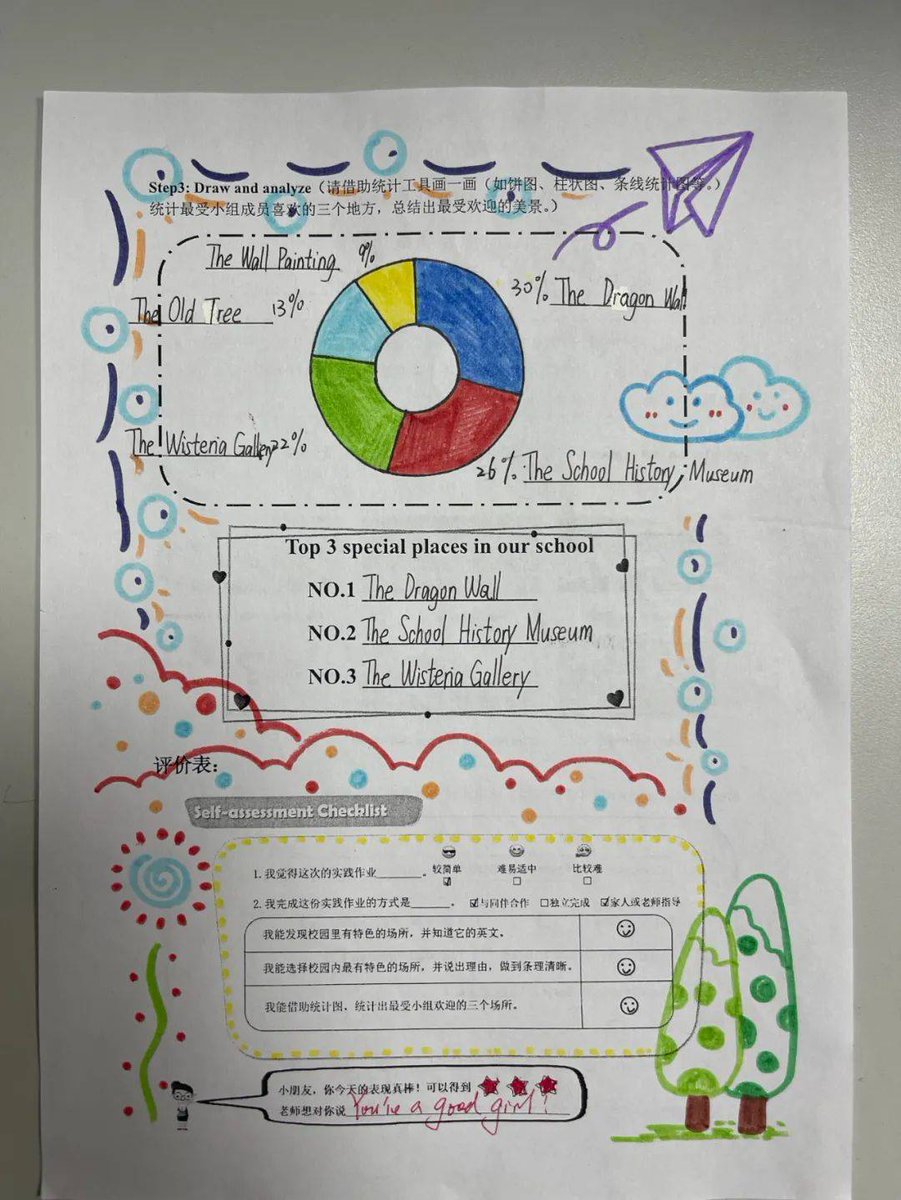 Step3: Draw and analyze（请借助统计工具画一画（如饼图、柱状图、条线统计图等。）
统计最受小组成员喜欢的三个地方，总结出最受欢迎的美景。）
The Wall Painting 9%
30% The Dragon Wall
The Old Tree 13%
The Wisteria Gallery 22%
26% The School History Museum
Top 3 special places in our school
NO.1 The Dragon Wall
NO.2 The School History Museum
NO.3 The Wisteria Gallery
评价表：
Self-assessment Checklist
1. 我觉得这次的实践作业______。 较简单 难易适中 比较难
☑ ☐ ☐
2. 我完成这份实践作业的方式是______。 ☑与同伴合作 ☐独立完成 ☑家人或老师指导
我能发现校园里有特色的场所，并知道它的英文。
我能选择校园内最有特色的场所，并说出理由，做到条理清晰。
我能借助统计图、统计出最受小组欢迎的三个场所。
小朋友，你今天的表现真棒！可以得到
老师想对你说 You're a good girl!